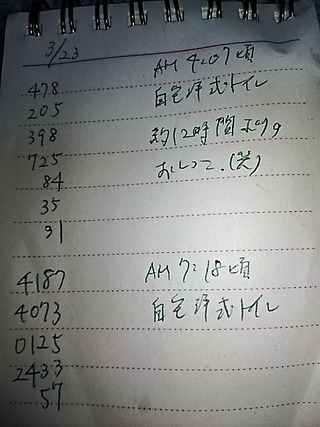 3/23
AM 4:07頃
478
自宅洋式トイレ
205
約12時間ぶり。
398
おしっこ.(笑)
725
84
35
31
4187
AM 7:18頃
4073
自宅洋式トイレ
0125
2433
57